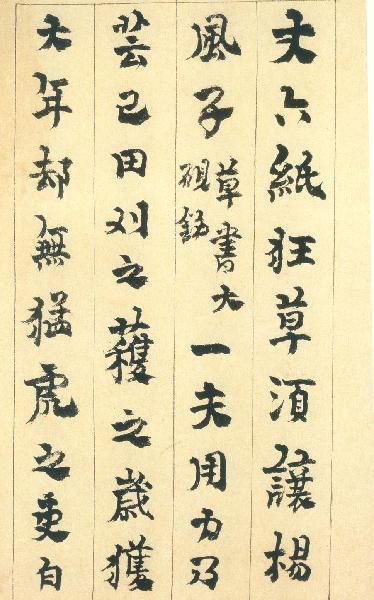 丈六紙狂草須讓楊
風子草書大硯銘一夫用力乃
芸己田刈之穫之歲獲
大年却無猛虎之吏